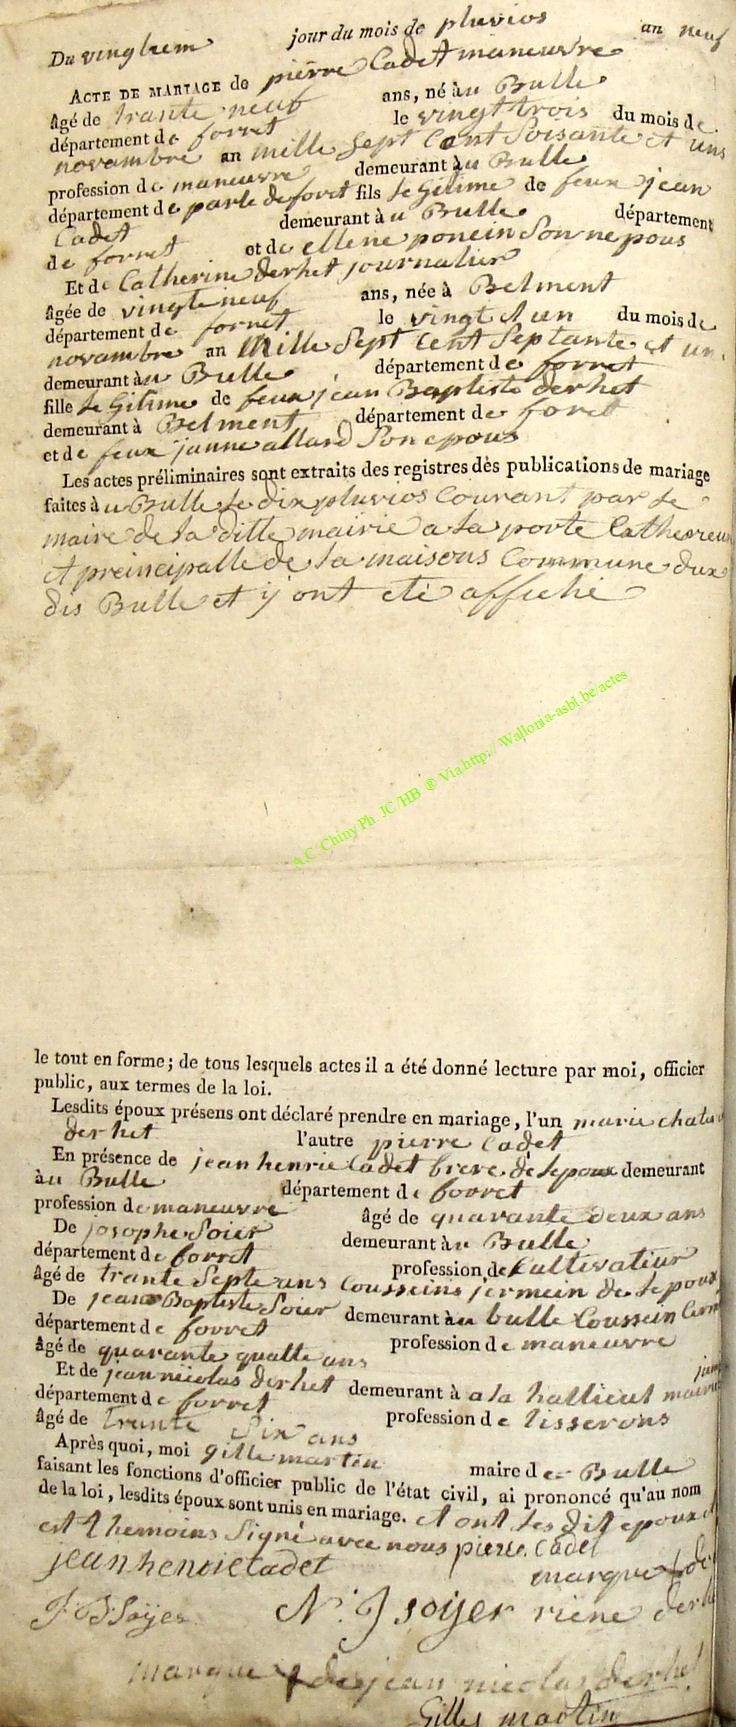 Du vingtiem jour du mois de pluvios an neuf
ACTE DE MARIAGE de pierre Cadet maneuvre
âgé de trante neuf ans, né àu Bulle
département de forret le vingt trois du mois de
novambre an mille sept cent soisante et uns
profession de maneuvre demeurant àu Bulle
département de parle de foret fils legitime de feux jean
Cadet demeurant àu Bulle département
de forret et de ellene poncin son nepous
Et de Catherine derhet journalier
âgée de vingt neuf ans, née à Belment
département de forret le vingt et un du mois de
novambre an Mille sept cent septante et un
demeurant àu Bulle département de forret
fille legitime de feux jean Baptiste derhet
demeurant à Belment département de foret
et de feux janne allard son epous
Les actes préliminaires sont extraits des registres dès publications de mariage
faites àu Bulle le dix pluvios courant par le
maire de la ditte mairie a la porte
et preincipalle de la maisous Commune dux
dis Bulle et y ont eté affiché
A.C. Chiny Ph. JC/HB ® Via http://Wallonia-asbl.be/actes
le tout en forme; de tous lesquels actes il a été donné lecture par moi, officier
public, aux termes de la loi.
Lesdits époux présens ont déclaré prendre en mariage, l'un marie
derhet l'autre pierre Cadet
En présence de jean henrie Cadet frere de lepoux demeurant
àu Bulle département de forret
profession de maneuvre âgé de quarante deux ans
De josophe Soier demeurant àu Bulle
département de forret profession de Cultivatiur
âgé de trante septe ans Cousseins jermein de lepoux
De jean Baptiste Soier demeurant àu bulle Coussein
département de forret profession de maneuvre
âgé de quarante quatte ans
Et de jean nicolas derhet demeurant à a la hallieul mairie
département de forret profession de tisserons
âgé de trante six ans
Après quoi, moi gille martin maire de Bulle
faisant les fonctions d'officier public de l'état civil, ai prononcé qu'au nom
de la loi, lesdits époux sont unis en mariage. et ont les dit epoux
est themoins signé avec nous pierre Cadet
jean henrie Cadet marque de
J B Soÿer N. J soijer
marque de jean nicolas derhet
Gilles martin